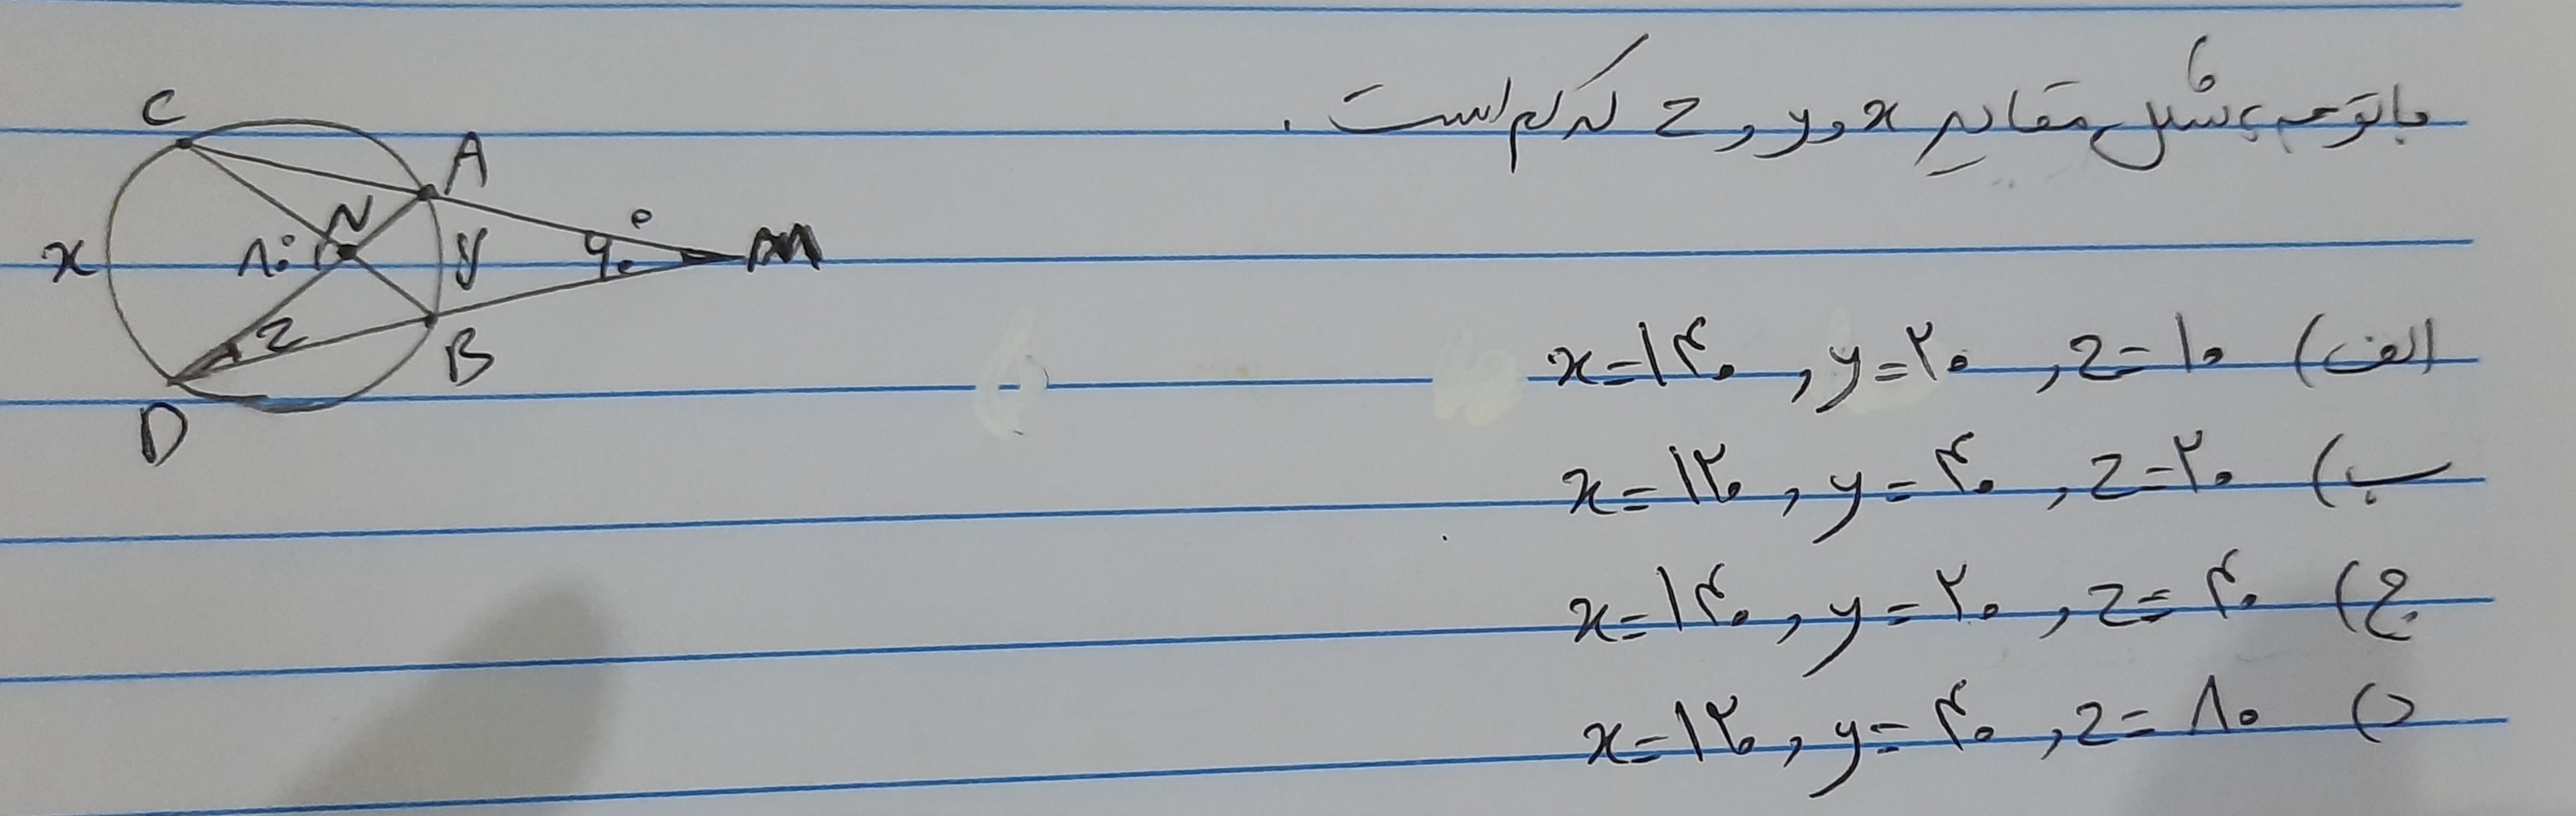 با توجه به شکل مقادیر x و y و z کدام است.
C
A
N
x
۸۰°
y
۶۰°
M
z
B
D
الف) x=۱۴۰ , y=۲۰ , z=۱۰
ب) x=۱۲۰ , y=۴۰ , z=۲۰
ج) x=۱۴۰ , y=۲۰ , z=۴۰
د) x=۱۲۰ , y=۴۰ , z=۸۰